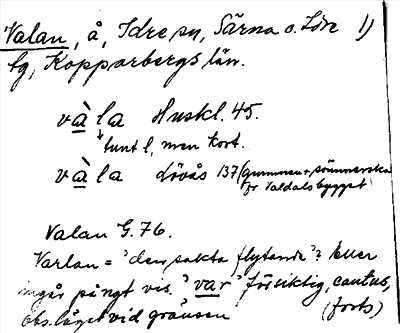 Valan, å, Idre sn, Särna o. Idre 1)
tg, Kopparbergs län.
vàla Huskl. 45.
tunt l, men kort.
vàla Lövås 137 (gumman + sömmerska
fr. Valdalsbygget)
Valan G. 76.
Varlan = "den sakta flytande"? Eller
ingår på ngt vis "var" försiktig, cautus,
obs. läget vid gränsen (forts)